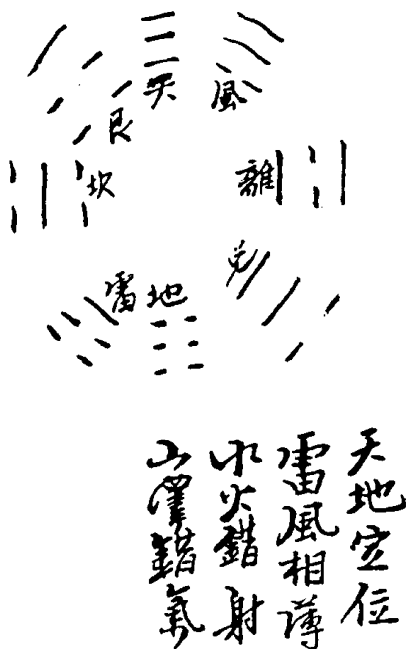 天
風
艮
坎
離
兑
雷
地
天地定位
雷風相薄
水火錯射
山澤錯氣